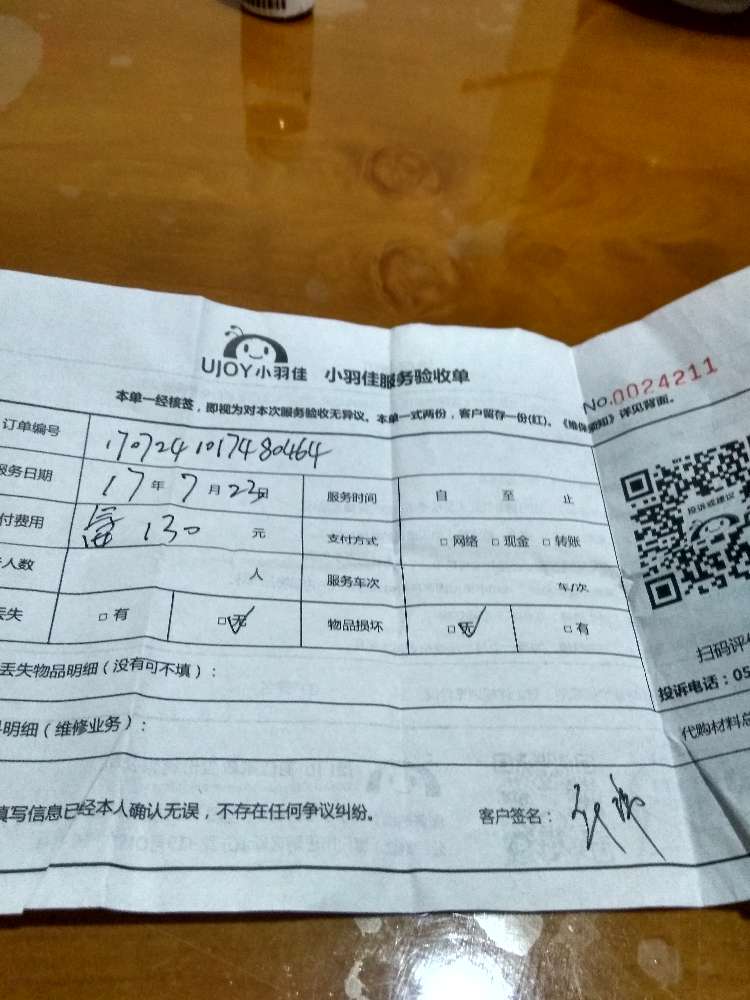 UJOY小羽佳 小羽佳服务验收单
No.0024211
本单一经核签，即视为对本次服务验收无异议。本单一式两份，客户留存一份(红)。《维保须知》详见背面。
订单编号 1707241017480464
服务日期 17年7月23日 服务时间 自 至 止
付费用 130 元 支付方式 □网络 □现金 □转账
人数 人 服务车次 车/次
丢失 □有 □无 物品损坏 □无 □有
投诉或建议
扫码评
投诉电话：05
丢失物品明细（没有可不填）：
明细（维修业务）：
代购材料总
填写信息已经本人确认无误，不存在任何争议纠纷。 客户签名：